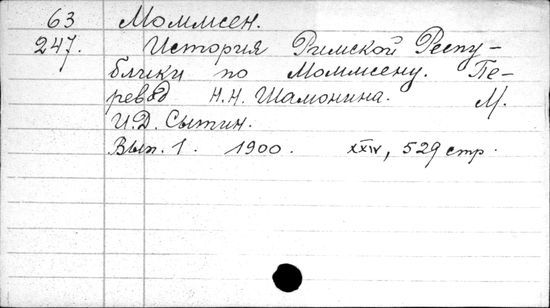 63 Моммсен.
247. История Римской Респу-
блики по Моммсену. Пе-
ревод Н.Н. Шамонина. М.
И.Д. Сытин.
Вып. 1. 1900. XXIV, 529 стр.